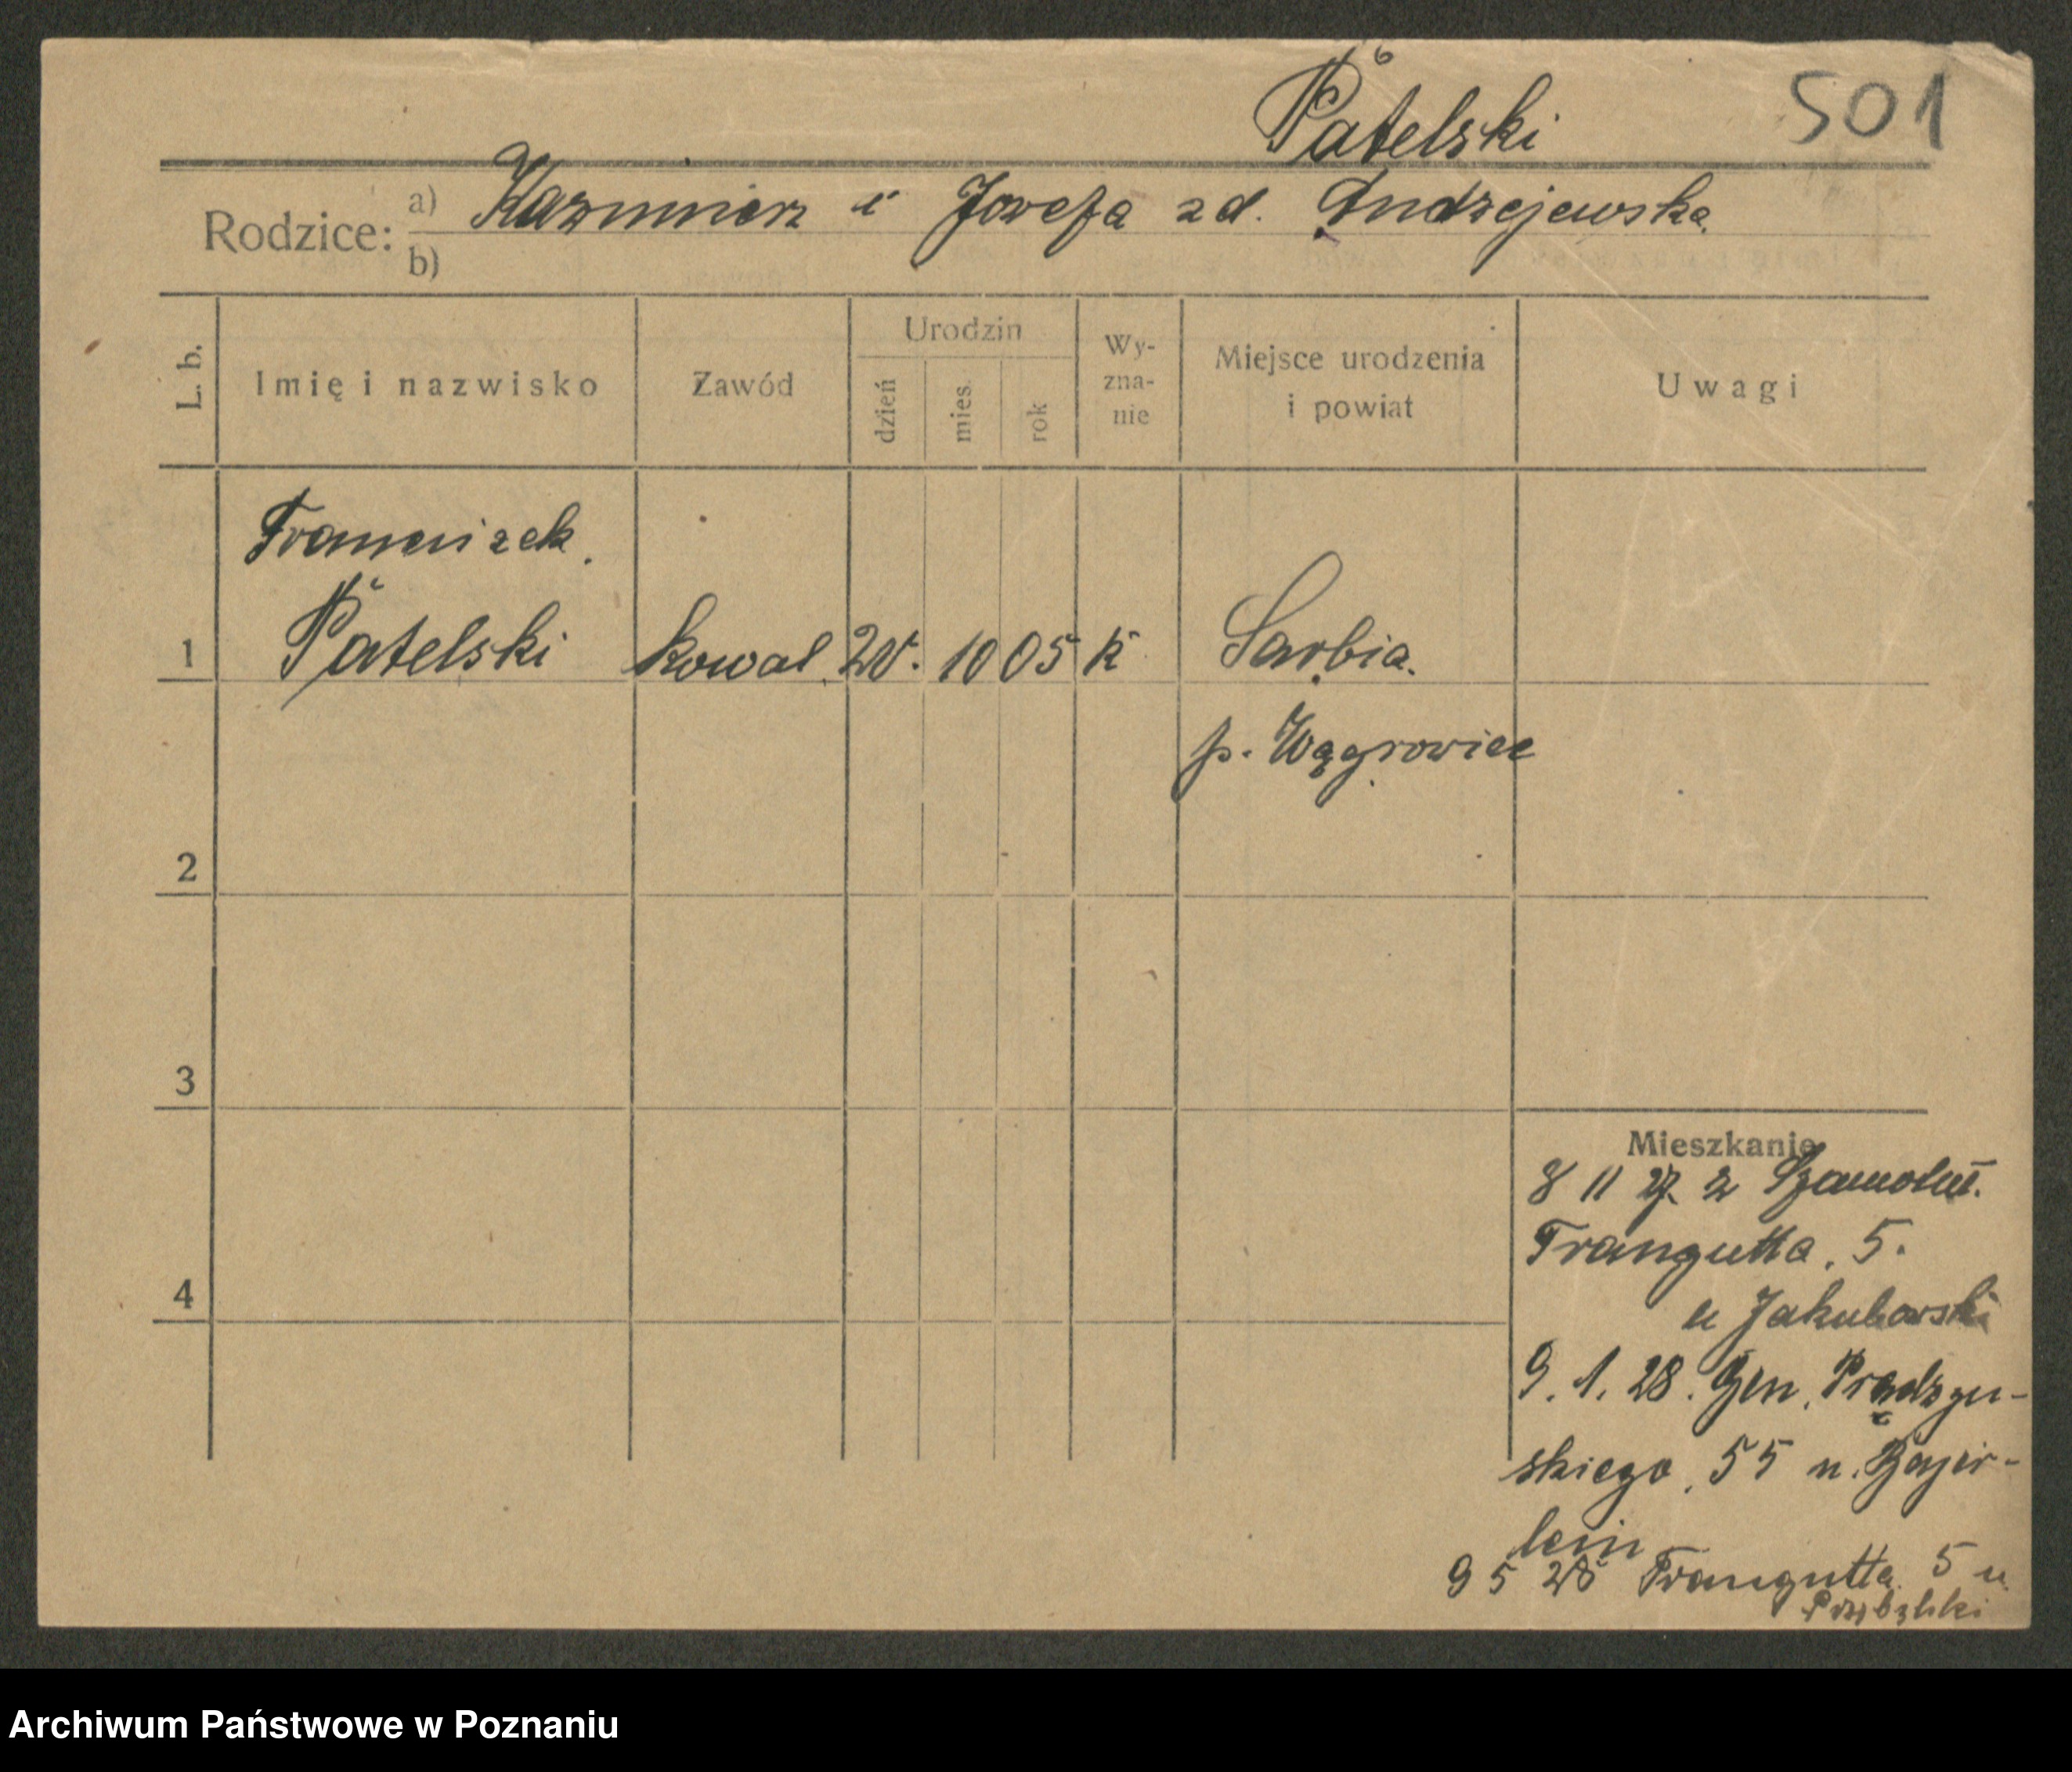 Patelski 501
Rodzice: a) Kazimierz i Józefa zd. Andrzejewska
b)
L. b. Imię i nazwisko Zawód Urodzin dzień mies. rok Wy-zna-nie Miejsce urodzenia i powiat Uwagi
Franciszek
1 Patelski kowal 20. 10 05 k Sarbia.
p. Wągrowiec
2
3
Mieszkanie
8 11 27. z Szamotuł.
4 Traugutta, 5.
u Jakubowski
9. 1. 28. Gen. Prądzyń-
skiego, 55 u. Bajer-
lein
9 5 28 Traugutta 5 u
Przybylski
Archiwum Państwowe w Poznaniu